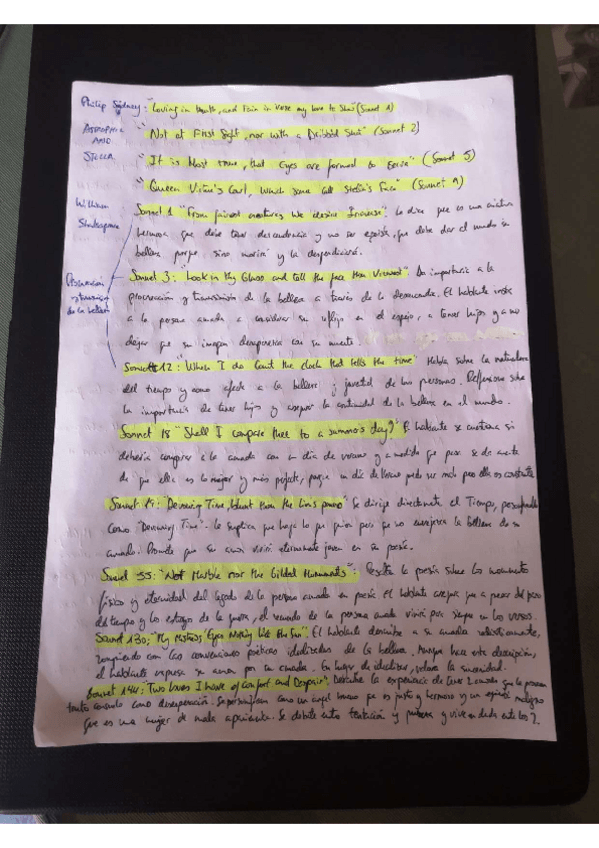 Philip Sydney: "Loving in truth, and Fain in verse my love to show" (Sonnet 1)
ASTROPHIL AND STELLA
"Not at First Sight, nor with a Dribbed Shot" (Sonnet 2)
"It is Most true, that Eyes are formed to serve" (Sonnet 5)
"Queen Virtue's Court, which some call Stella's Face" (Sonnet 9)
William Shakespeare
Sonnet 1 "From fairest creatures we desire Increase". Le dice que es una criatura
hermosa que debe tener descendencia y no ser egoista, que debe dar al mundo su
belleza porque sino morirá y la desperdiciará.
Sonnet 3: "Look in thy Glass and tell the face thou Viewest". Da importancia a la
procreación y transmisión de la belleza a través de la descendencia. El hablante insta
a la persona amada a considerar su reflejo en el espejo, a tener hijos y a no
dejar que su imagen desaparezca con su muerte.
Sonnet 12: "When I do Count the clock that tells the time" Habla sobre la naturaleza
del tiempo y como afecta a la belleza y juventud de las personas. Reflexiona sobre
la importancia de tener hijos y asegurar la continuidad de la belleza en el mundo.
Sonnet 18 "Shall I compare thee to a summer's day?" El hablante se cuestiona si
debería comparar a la amada con un día de verano y a medida que pasa se da cuenta
de que ella es lo mejor y más perfecta, porque un día de Verano puede ser malo pero ella es constante
Sonnet 19: "Devouring Time, blunt thou the lion's paws" Se dirige directamente al Tiempo,
como "Devouring Time". Le suplica que haga lo que quiera pero que no envejezca la belleza de su
amado. Promete que su amor vivirá eternamente joven en su poesía.
Sonnet 55: "Not Marble nor the Gilded Monuments": Resalta la poesía sobre los monumentos
físicos y eternidad del legado de la persona amada en poesía. El hablante asegura que a pesar del paso
del tiempo y los estragos de la guerra, el recuerdo de la persona amada vivirá por siempre en los versos.
Sonnet 130: "My Mistress' Eyes Nothing like the Sun". El hablante describe a su amada realisticamente,
rompiendo con las convenciones poéticas idealizadas de la belleza. Aunque hace esta descripción,
el hablante expresa su amor por su amada. En lugar de idealizar, valora la sinceridad.
Sonnet 144: "Two loves I have of Comfort and Despair". Describe la experiencia de tener 2 amores que le provocan
tanto consuelo como desesperación. Se personifican como un ángel bueno que es justo y hermoso y un espíritu maligno
que es una mujer de mala apariencia. Se debate entre tentación y pureza y vive en duda entre los 2.